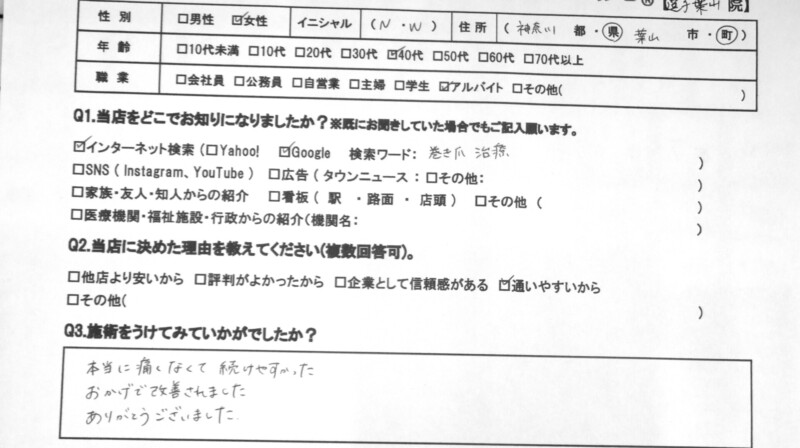 【逗子葉山 院】
性 別 □男性 ☑女性 イニシャル ( N ・ W ) 住 所 ( 神奈川 都 ・ 県 葉山 市 ・ 町 )
年 齢 □10代未満 □10代 □20代 □30代 ☑40代 □50代 □60代 □70代以上
職 業 □会社員 □公務員 □自営業 □主婦 □学生 ☑アルバイト □その他( )
Q1.当店をどこでお知りになりましたか?※既にお聞きしていた場合でもご記入願います。
☑インターネット検索 (□Yahoo! ☑Google 検索ワード: 巻き爪 治療 )
□SNS ( Instagram、YouTube ) □広告 ( タウンニュース : □その他: )
□家族・友人・知人からの紹介 □看板 ( 駅 ・路面 ・ 店頭 ) □その他 ( )
□医療機関・福祉施設・行政からの紹介(機関名: )
Q2.当店に決めた理由を教えてください(複数回答可)。
□他店より安いから □評判がよかったから □企業として信頼感がある ☑通いやすいから
□その他( )
Q3.施術をうけてみていかがでしたか?
本当に痛くなくて 続けやすかった
おかげで改善されました
ありがとうございました